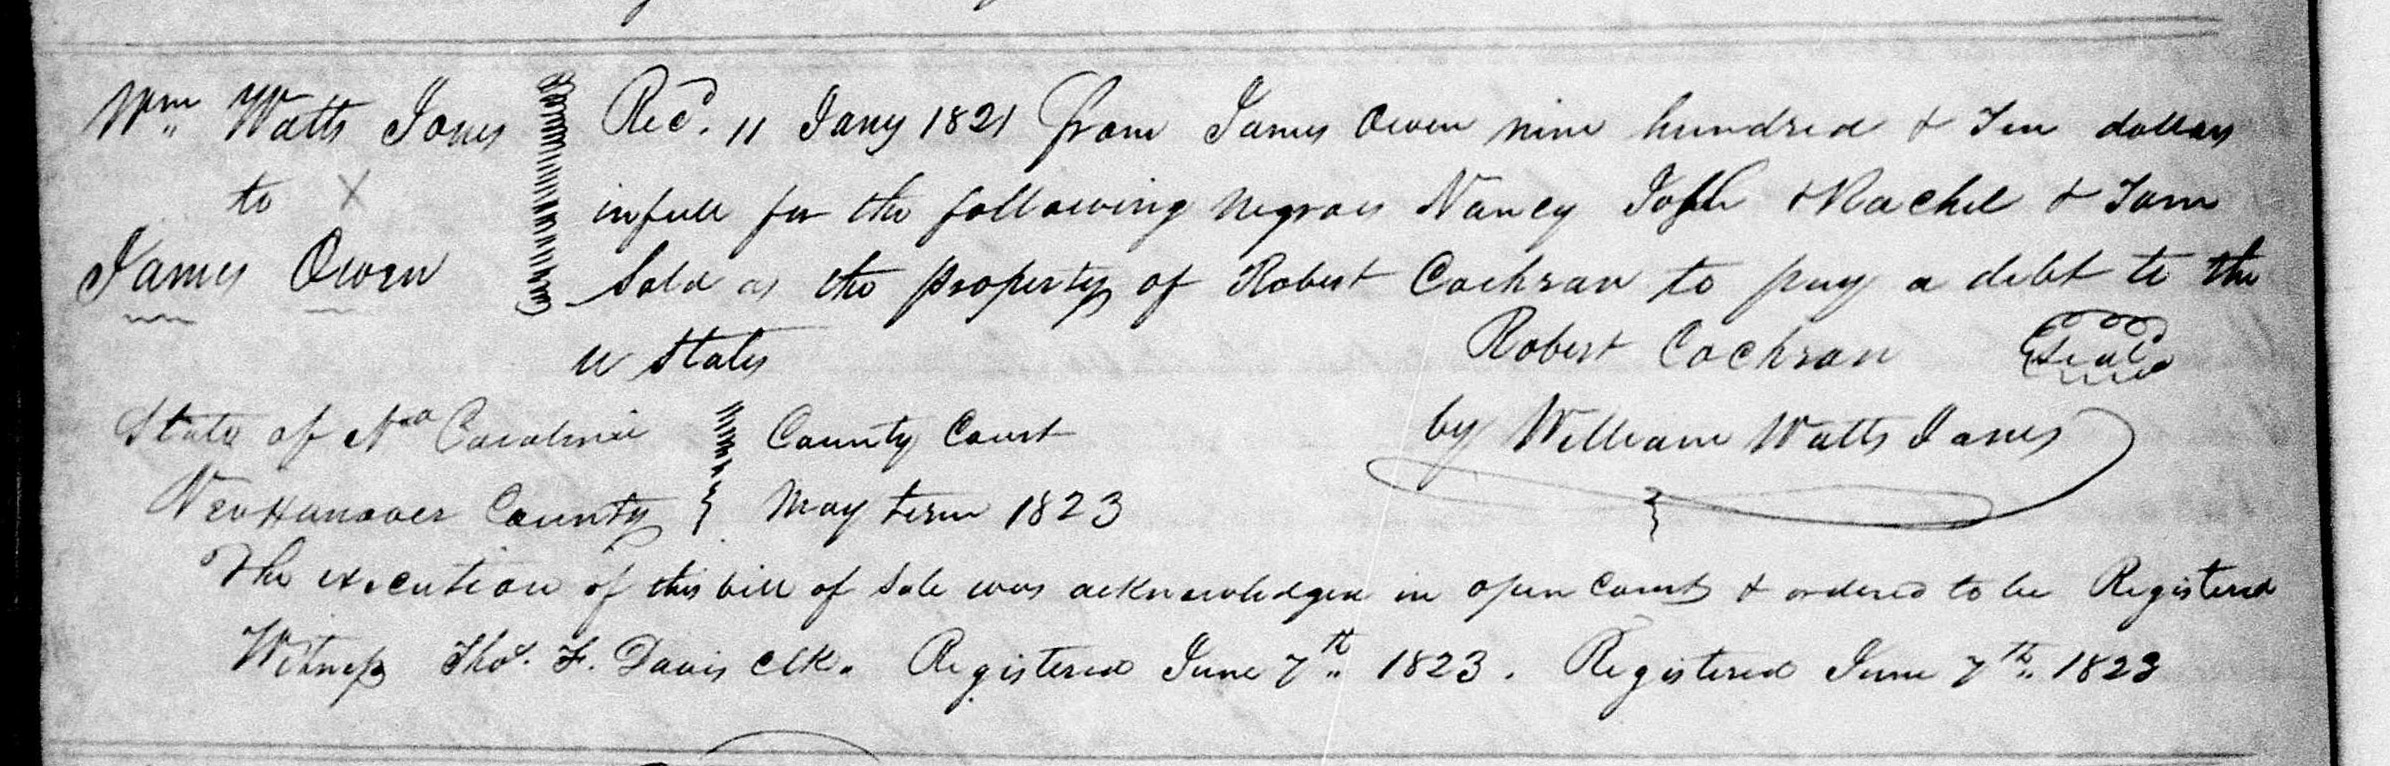 Wm Watts Jones Rec'd. 11 Jany 1821 from James Owen nine hundred & Ten dollars
to X infull for the following negroes Nancy & Rachel & Tom
James Owen Sold as the property of Robert Cochran to pay a debt to the
U States Robert Cochran Seal
State of No Carolina County Court by William Watts Jones
New Hanover County May term 1823
The execution of this bill of Sale was acknowledged in open Court & ordered to be Registered
Witness Thos. F. Davis Clk. Registered June 7th 1823. Registered June 7th 1823